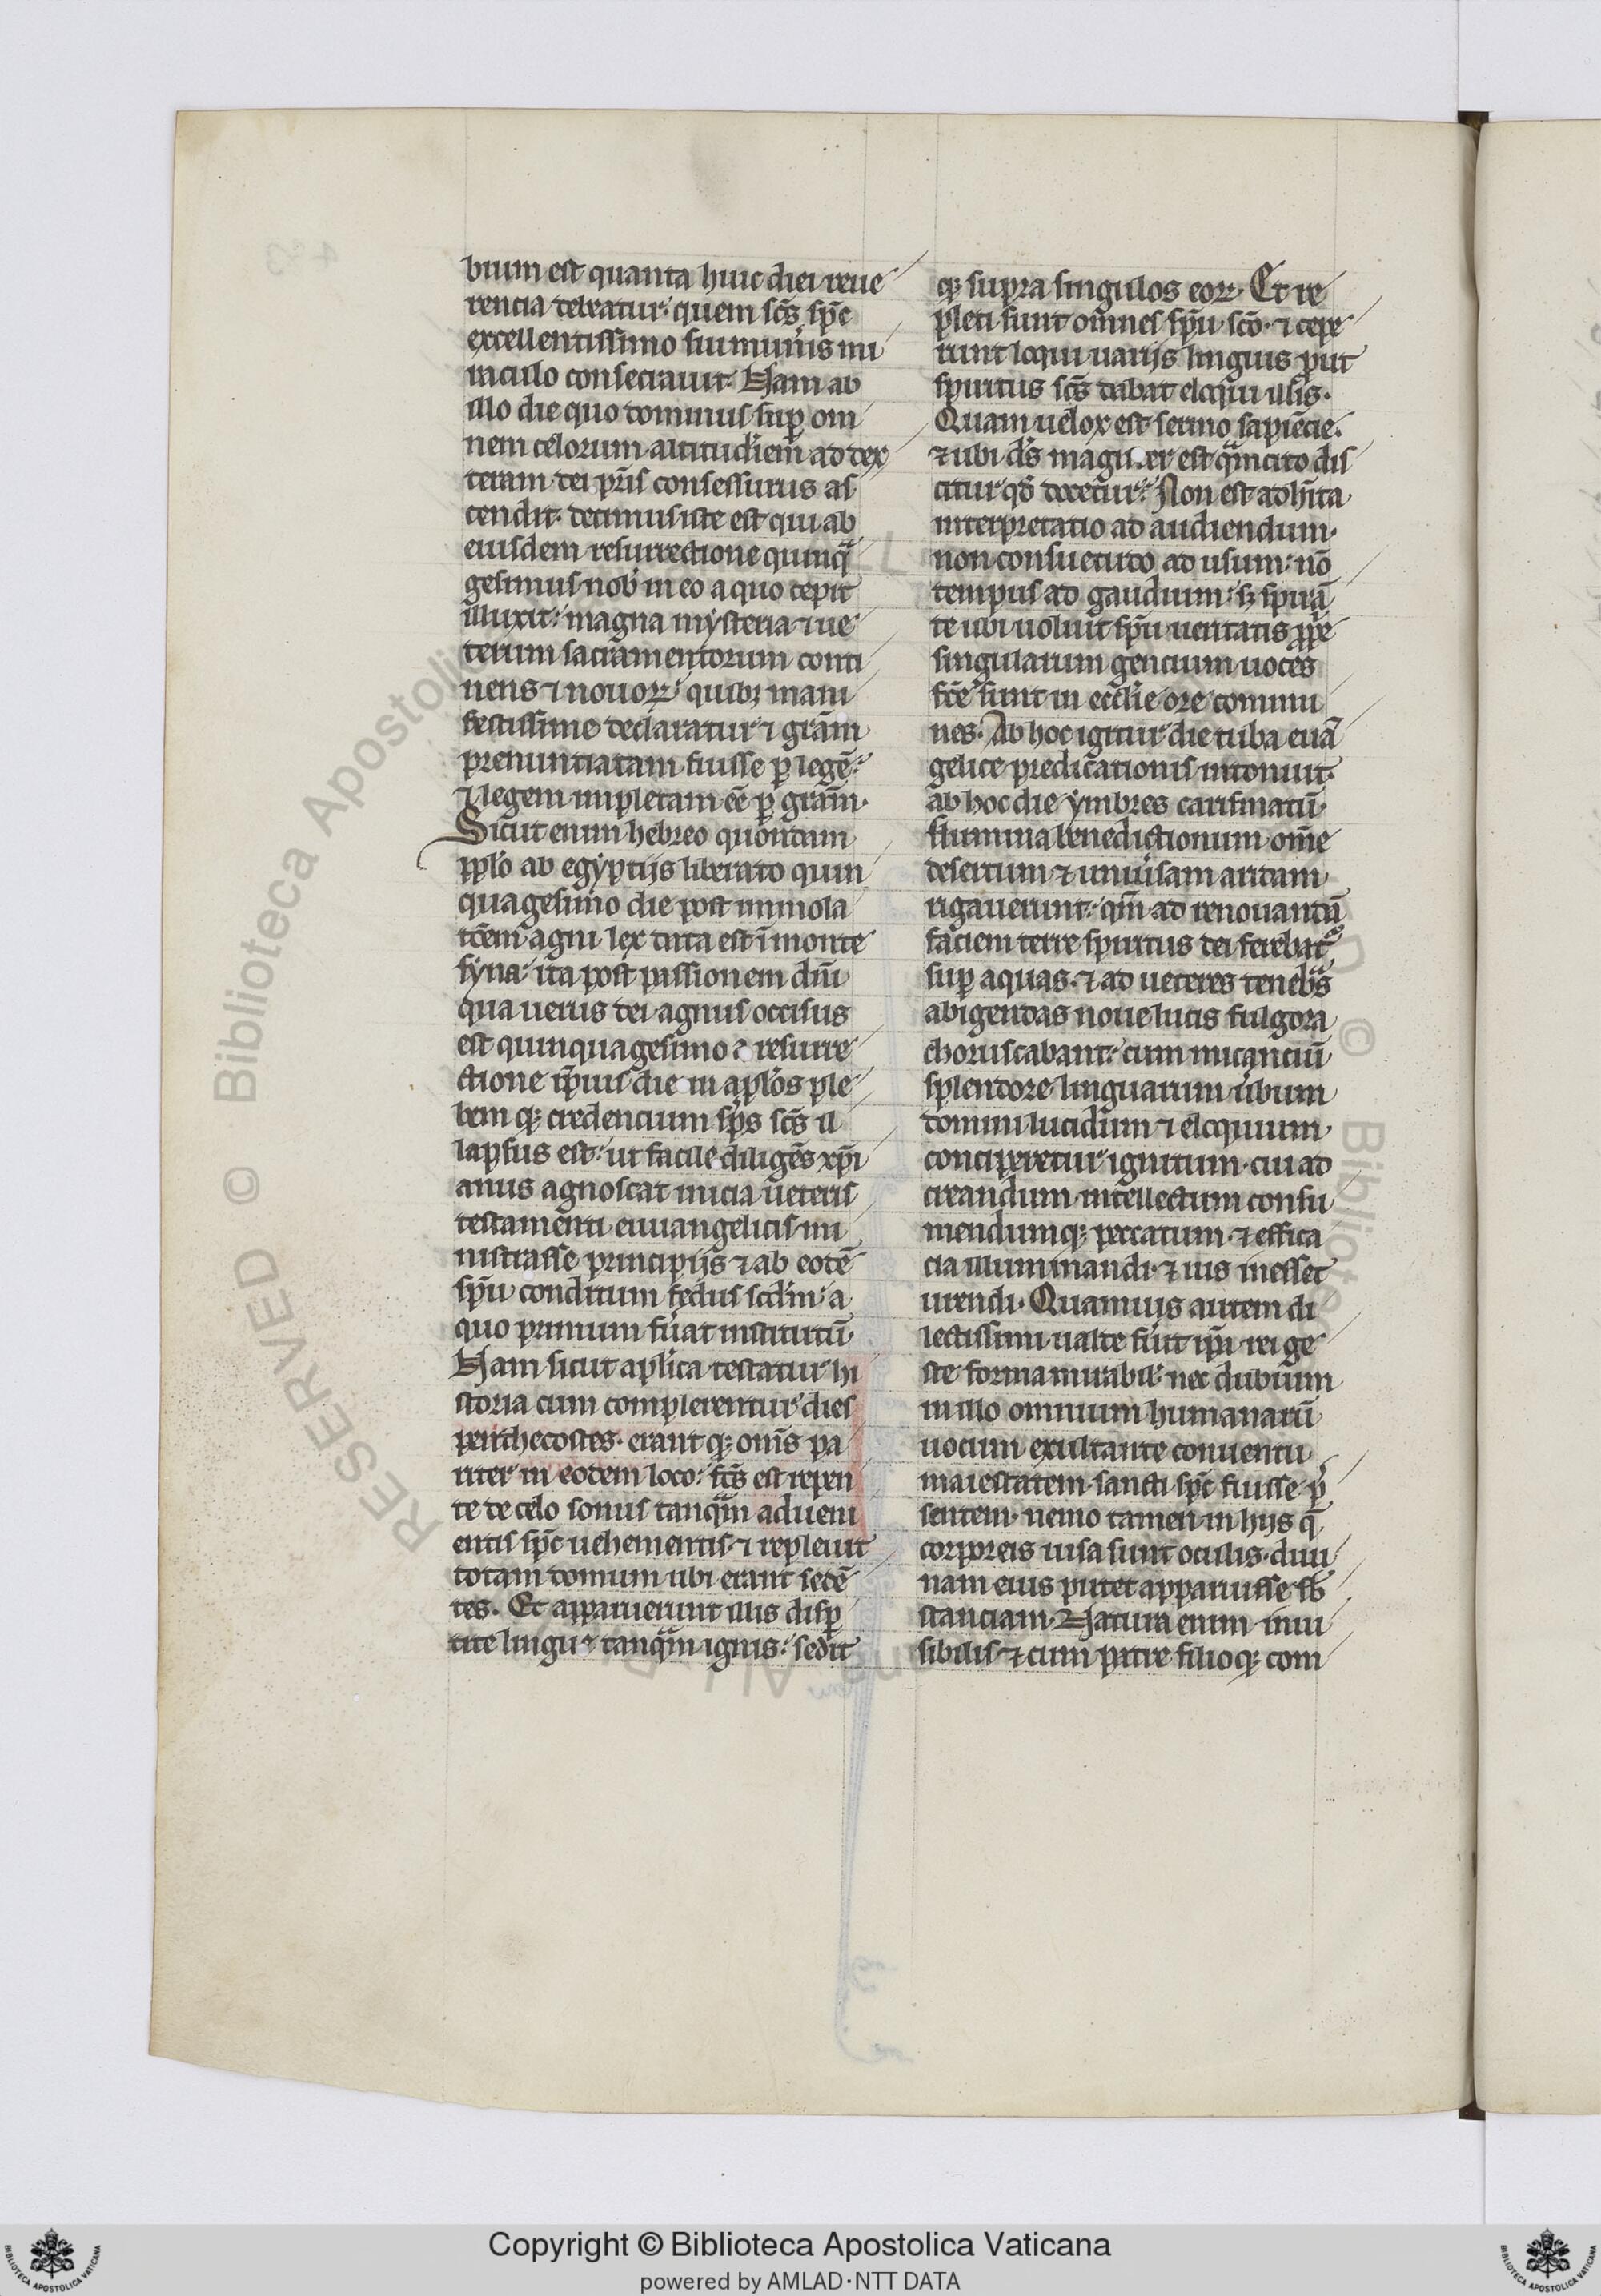 bium est quanta huic diei reue
rencia debeatur· quem scs̄ sp̄c
excellentissimo sui mun̾is mi
raculo consecrauit· Nam ab
illo die quo dominus sup̱ om
nem celorum altitudiēm ad dex
teram dei pr̄is consessurus as
cendit· decimus iste est qui ab
eiusdem resurrectione quinqᵃ
gesimus nob̾ in eo a quo cepit
illuxit: magna mysteria ⁊ ue
terum sacramentorum conti
nens ⁊ nouoꝝ· quibꝫ mani
festissime declaratur ⁊ grām
prenuntiatam fuisse ꝑ legē:
⁊ legem impletam eē ꝑ grām·
Sicut enim hebreo quondam
pplo̾ ab egyptijs liberato quin
quagesimo die post immola
tōem agni lex data est ī monte
syna: ita post passionem dn̄i
qua uerus dei agnus occisus
est quinquagesimo a resurre
ctione ip̄ius die in apl̾os ple
bem qꝫ credencium sp̄s scs̄ il
lapsus est: ut facile diligēs xp̄i
anus agnoscat inicia ueteris
testamenti euuangelicis mi
nistrasse principijs ⁊ ab eodē
sp̄u conditum fedus scd̄m· a
quo primum fu̾at institutū·
Nam sicut apl̾ica testatur hi
storia cum complerentur dies
penthecostes· erant qꝫ om̄s pa
riter in eodem loco: fcs̄ est repen
te de celo sonus tanqᵃm adueni
entis sp̄c uehementis· ⁊ repleuit
totam domum ubi erant sedē
tes· Et apparuerunt illis disꝑ
tite lingue tanqᵃm ignis: sedit
qꝫ supra singulos eoꝝ· Et re
pleti sunt omnes sp̄u scō· ⁊ cepe
runt loqui uarijs linguis ꝓut
spiritus scs̄ dabat eloqui illis·
Quam uelox est sermo sapiēcie·
⁊ ubi ds̄ magister est qᵃm cito dis
citur qd̾ docetur: Non est adhīta
interpretatio ad audiendum·
non consuetudo ad usum: nō
tempus ad gaudium: sꝫ spirā
te ubi uoluit sp̄u ueritatis ꝓpe̾
singularum gencium uoces
fcē sunt in eccl̾ie ore commu
nes· Ab hoc igitur die tuba euā
gelice predicationis intonuit·
ab hoc die ymbres carismatū·
flumina benedictionum om̄e
desertum ⁊ uniu̾sam aridam
rigauerunt: qm̄ ad renouandā
faciem terre spiritus dei ferebatᷣ
sup̱ aquas· ⁊ ad ueteres tenebᵃs
abigendas noue lucis fulgora
choruscabant: cum micanciū
splendore linguarum u̾bum
domini lucidum ⁊ eloquium
conciperetur ignitum· cui ad
creandum intellectum consu
mendumqꝫ peccatum· ⁊ effica
cia illuminandi· ⁊ uis inesset
urendi· Quamuis autem di
lectissimi ualde fu̾it ip̄a rei ge
ste forma mirabil̾· nec dubium
in illo omnium humanarū
uocum exultante conuentu
maiestatem sancti sp̄c fuisse p̾
sentem· nemo tamen in hijs q̄
corporeis uisa sunt oculis· diui
nam eius putet apparuisse sb̾
stanciam· Natura enim inui
sibilis ⁊ cum patre filioqꝫ com
Copyright © Biblioteca Apostolica Vaticana
powered by AMLAD·NTT DATA